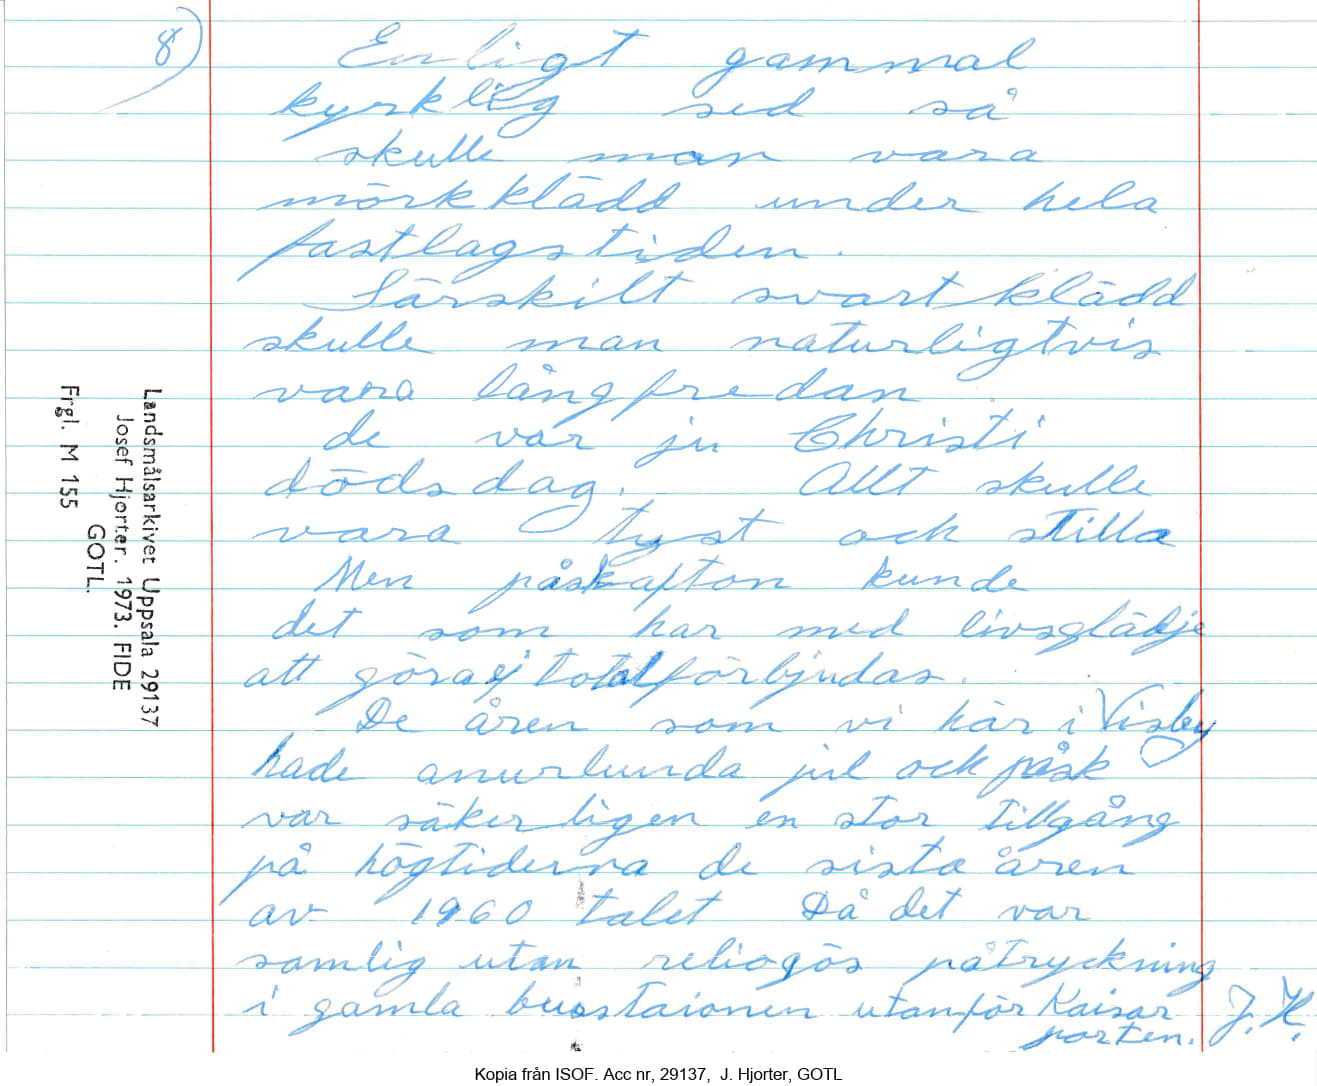 8)
Enligt gammal
kyrklig sed så
skulle man vara
mörkklädd under hela
fastlagstiden.
Särskilt svartklädd
skulle man naturligtvis
vara långfredan
de var ju Christi
dödsdag. Allt skulle
vara tyst och stilla
Men påskafton kunde
det som har med livsglädje
att göra ej totalförbjudas.
De åren som vi här i Visby
hade anurlunda jul ock påsk
var säkerligen en stor tillgång
på högtiderna de sista åren
av 1960 talet Då det var
samlig utan reliogös påtryckning
i gamla busstaionen utanför Kaisar
porten. J. H.
Landsmålsarkivet Uppsala 29137
Josef Hjorter. 1973. FIDE
GOTL.
Frgl. M 155
Kopia från ISOF. Acc nr, 29137, J. Hjorter, GOTL